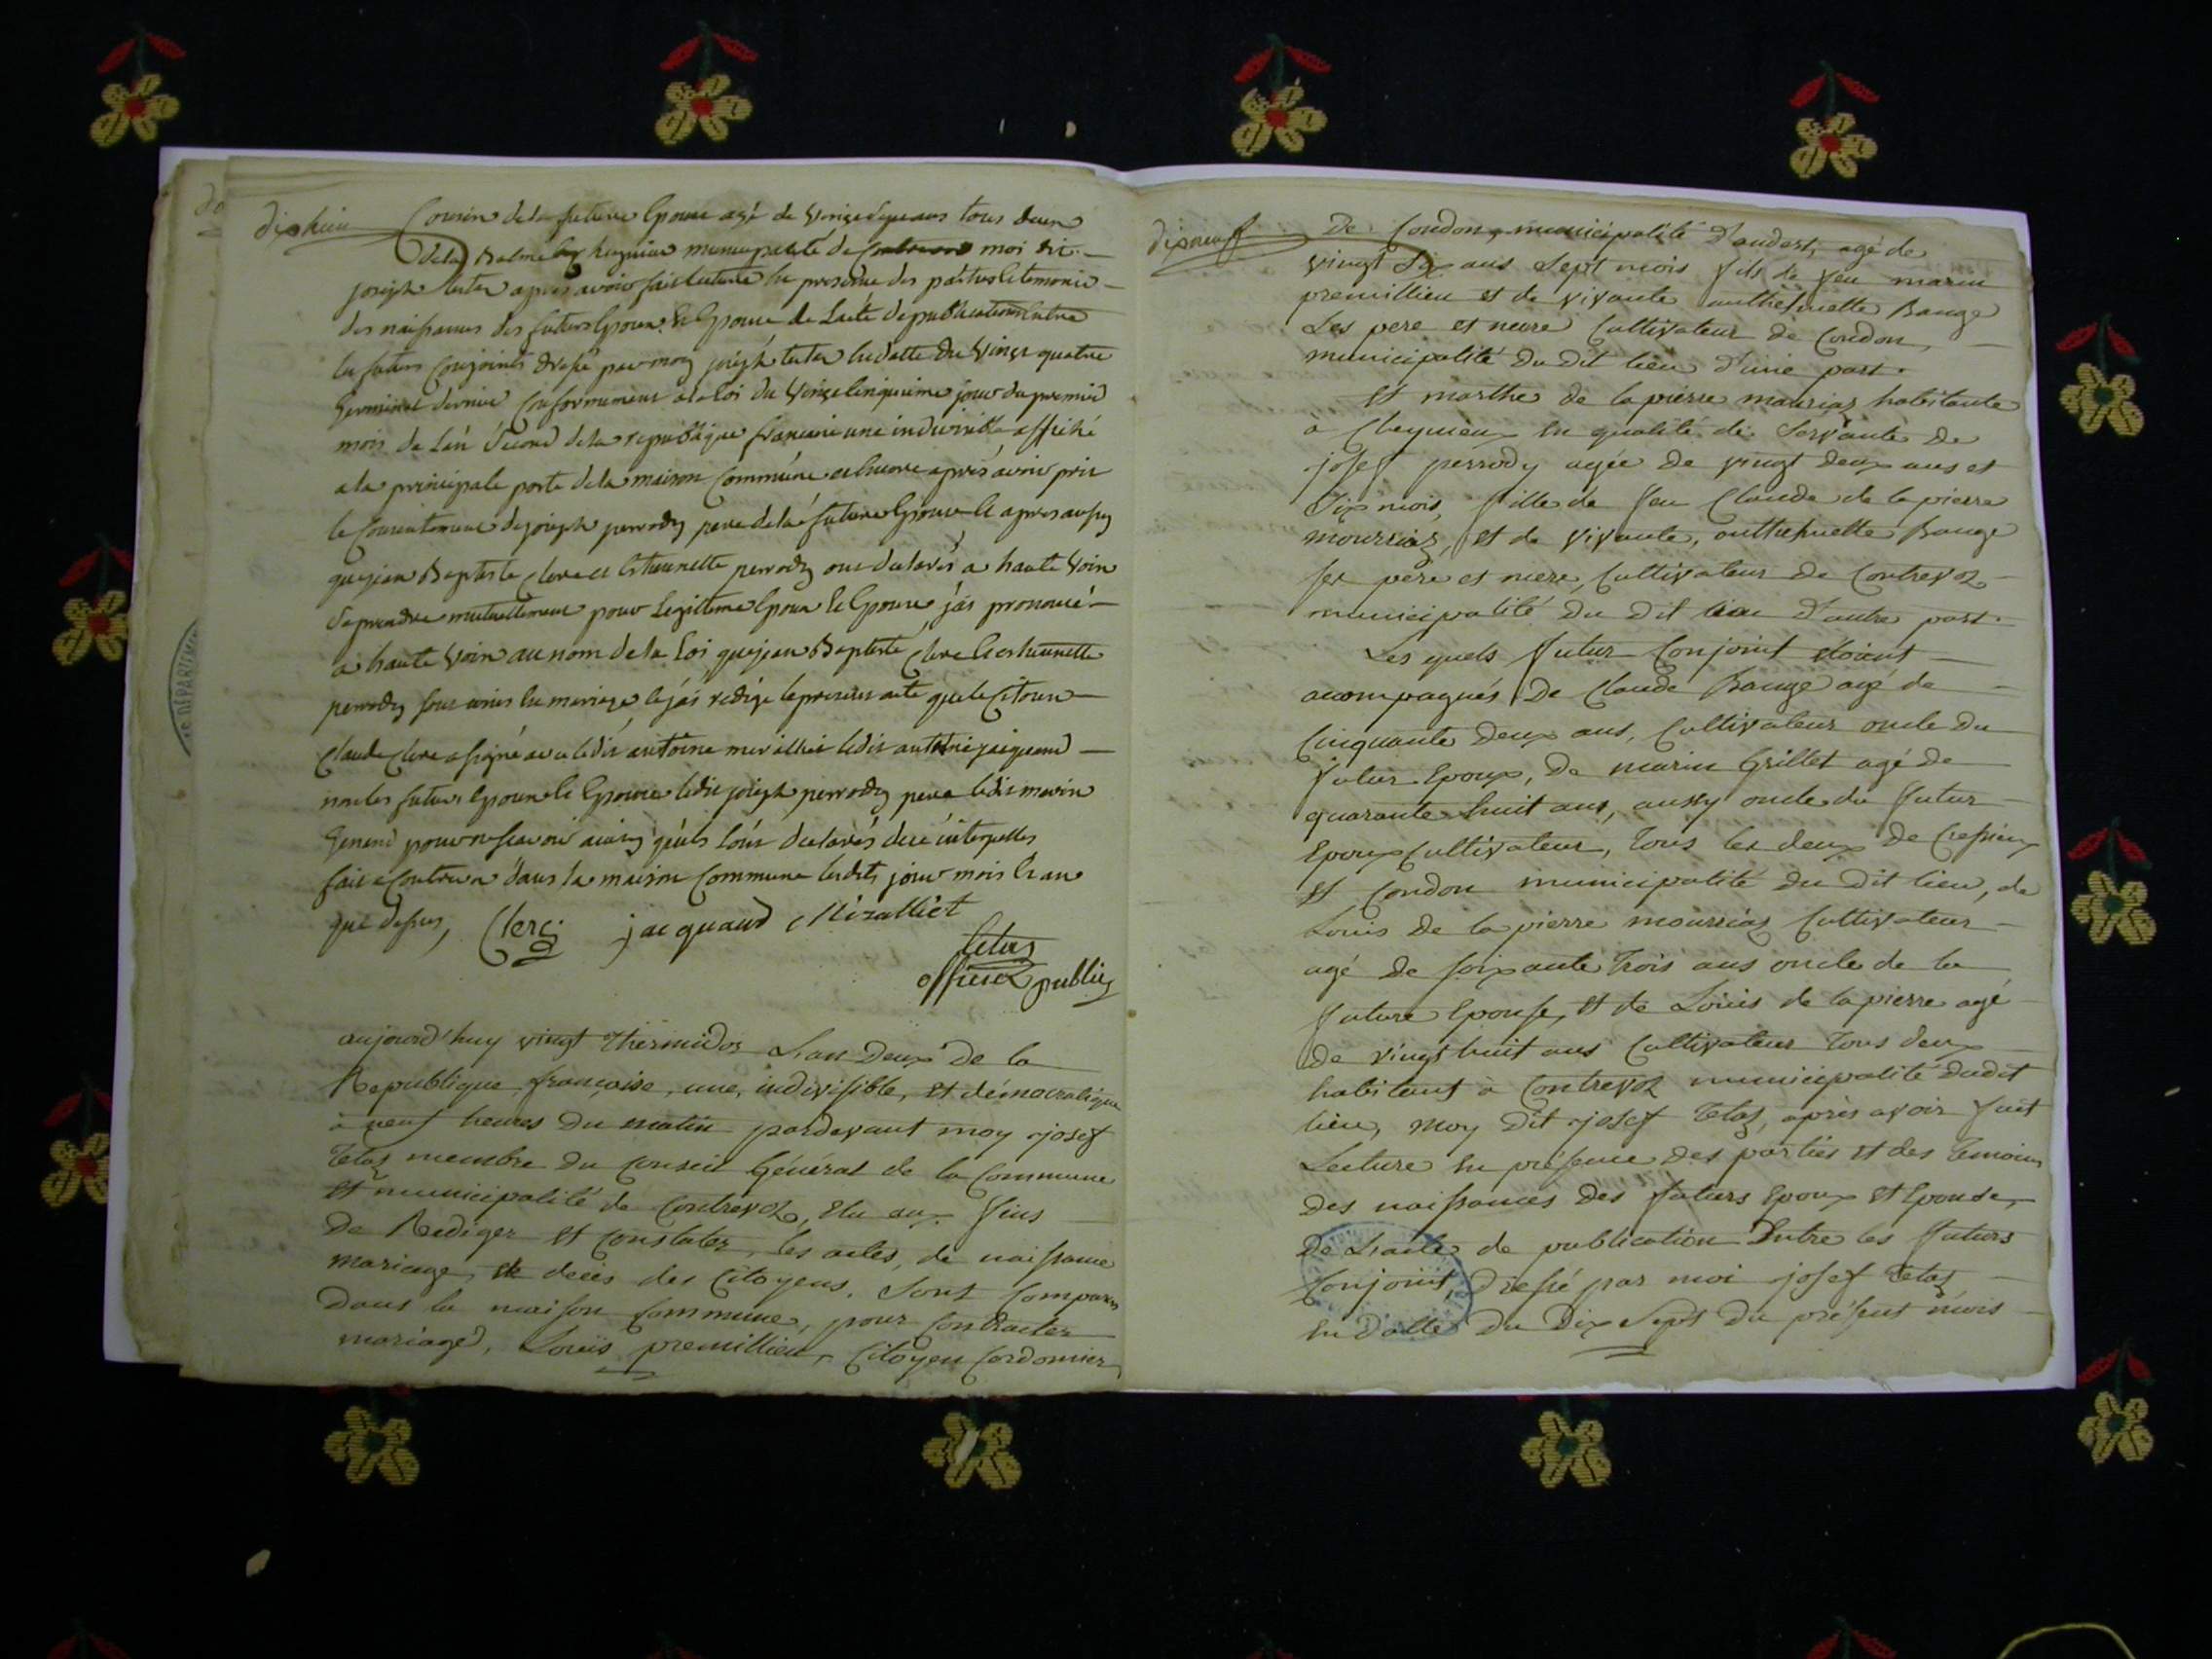 dixhui
Cousin de la future Epouse agé de vingt sept ans tous deux
de la Balme hugnieu municipalité de moi dit
joseph tetaz apres avoir fait lecture en presence des parties et temoins
des naissances des futurs Epoux et Epouse de Lacte de publication Entre
les futurs Conjoints dressé par moy joseph tetaz en datte du vingt quatre
Germinal dernier Conformement a la loi du vingt cinquieme jour du premier
mois de L'an Second de la republique françoise une indivisible affiché
a la principale porte de la maison Commune et Encore après avoir pris
le Consentement de joseph perrody pere de la future Epouse et apres aussy
que jean Baptiste Clerc et Estiennette perrody ont declarés a haute voix
se prendre mutuellement pour Legitime Epoux et Epouse j'ais prononcé
a haute voix au nom de la Loi que jean Baptiste Clerc et Estiennette
perrody sont unis en mariage et j'ai redigé le present acte que le Citoien
Claude Clerc a signé avec le dit antoine miralliet le dit antoine jaiquand
non les futurs Epoux et Epouse le dit joseph perrody pere le dit marin
Genend pour ne scavoir ainsy qu'ils l'ont declarés de ce interpellés
fait a Contrevoz dans la maison Commune lesdits jour mois et an
que dessus, Clerc jacquand Miralliet
tetaz
officier public
aujourd'huy vingt Thermidor L'an Deux De la
Republique françoise, une, indivisible, et démocratique
à neuf heures Du matin pardevant moy josef
Tetaz membre Du Conseil Général de la Commune
et municipalité de Contrevoz, Elu aux fins
De Rediger et Constater, les actes, de naissance
mariage, et décès des Citoyens. Sont Comparus
Dans la maison Commune, pour Contracter
mariage, Louis premillieu, Citoyen Cordonnier
dixneuf
De Condon, municipalité D'andert, agé de
vingt Six ans Sept mois fils de feu marin
premillieu et de vivante anthelmette Bauge
Les pere et mere Cultivateur de Condon,
municipalité Du Dit lieu D'une part.
Et marthe de la pierre mouriaz habitante
à Cheignieu En qualité de Servante de
josef perrody agée de vingt deux ans et
Six mois, fille de feu Claude de la pierre
mourriaz, et de vivante, anthelmette Bauge
ses père et mere, Cultivateur de Contrevoz
municipalité Du Dit lieu D'autre part.
Les quels futur Conjoint étoient
accompagnés De Claude Bauge agé de
Cinquante Deux ans, Cultivateur oncle Du
futur Epoux, De marin Grillet agé De
quarante huit ans, aussy oncle du futur
Epoux Cultivateur, Tous les deux De Cressieu
et Condon municipalité Du Dit lieu, de
Louis De la pierre mourriaz Cultivateur
agé De soixante Trois ans oncle de la
future Epouse, et de Louis de la pierre agé
De vingt huit ans Cultivateur Tous deux
habitant à Contrevoz municipalité dudit
lieu, moy Dit josef Tetaz, après avoir fait
Lecture En présence Des parties et des Temoins
Des naissances Des futurs Epoux et Epouse,
De L'acte de publication Entre les futurs
Conjoint, Dressé par moi josef Tetaz
En Datte Du Dix Sept Du présent mois